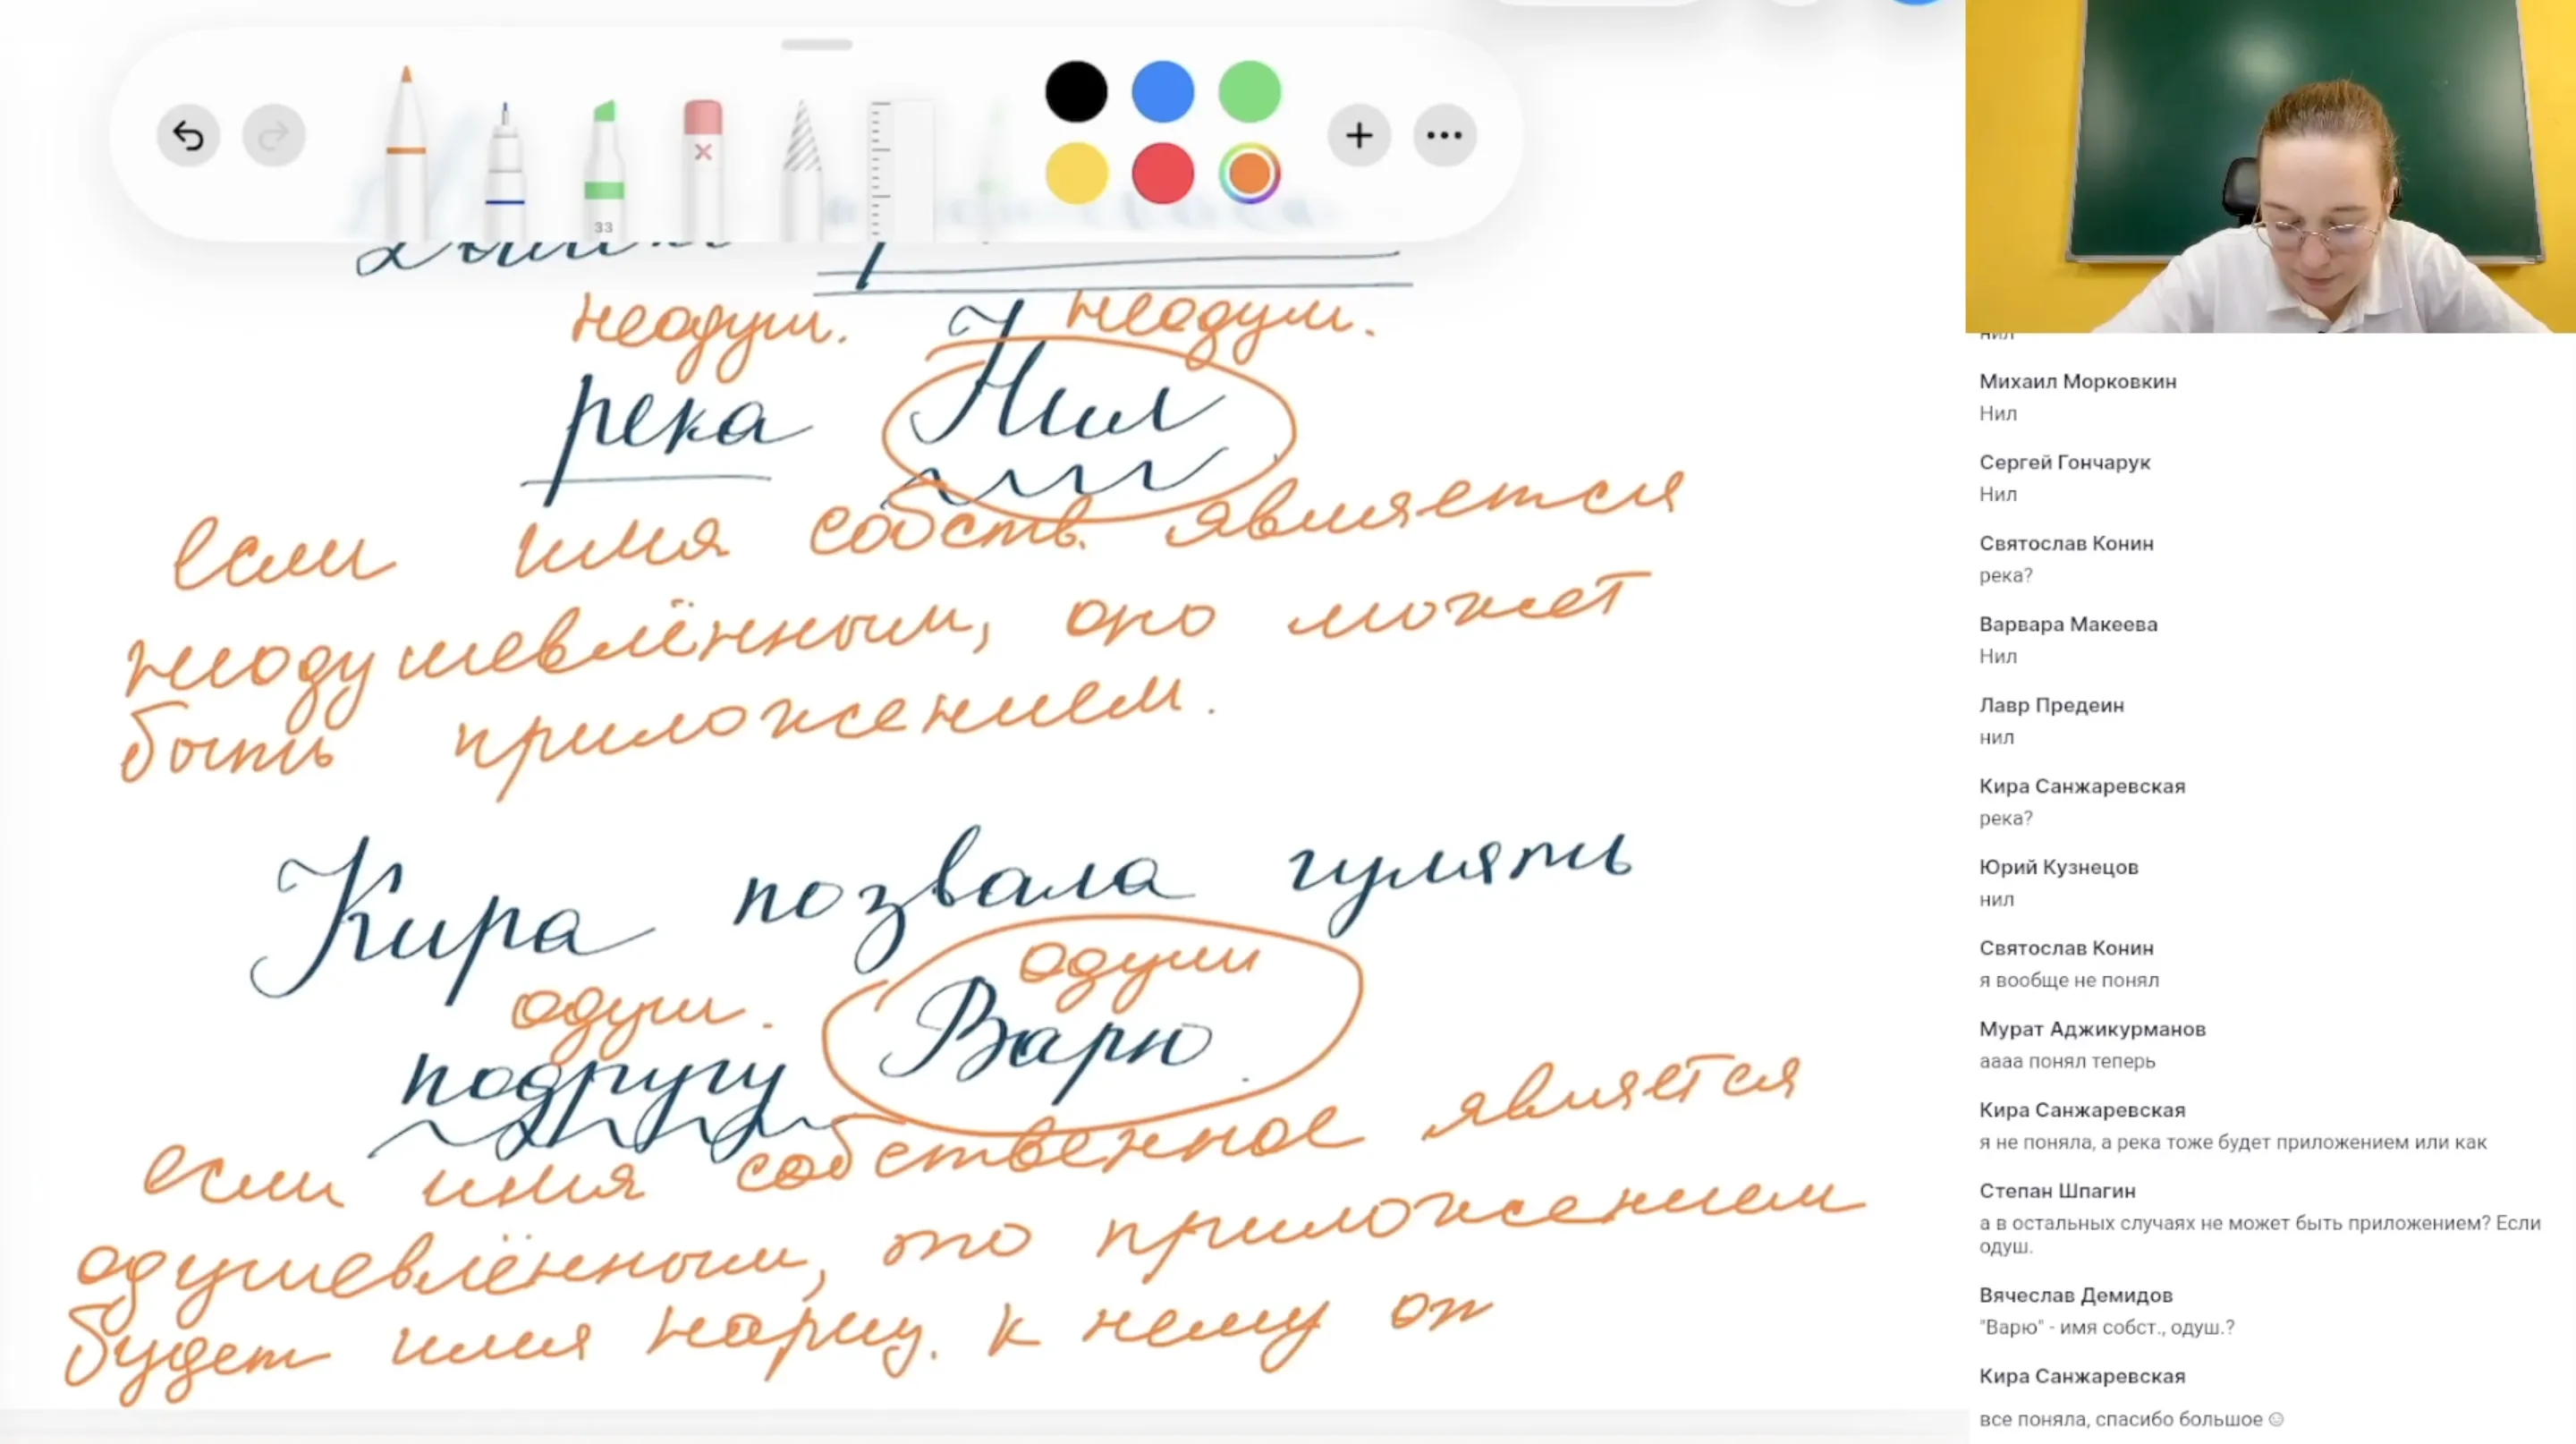 33
неодуш. неодуш.
река Нил
если имя собств. является
неодушевлённым, оно может
быть приложением.
Кира позвала гулять
одуш. одуш
подругу Варю.
если имя собственное является
одушевлённым, то приложением
будет имя нариц. к нему от
нил
Михаил Морковкин
Нил
Сергей Гончарук
Нил
Святослав Конин
река?
Варвара Макеева
Нил
Лавр Предеин
нил
Кира Санжаревская
река?
Юрий Кузнецов
нил
Святослав Конин
я вообще не понял
Мурат Аджикурманов
аааа понял теперь
Кира Санжаревская
я не поняла, а река тоже будет приложением или как
Степан Шпагин
а в остальных случаях не может быть приложением? Если
одуш.
Вячеслав Демидов
"Варю" - имя собст., одуш.?
Кира Санжаревская
все поняла, спасибо большое ☺